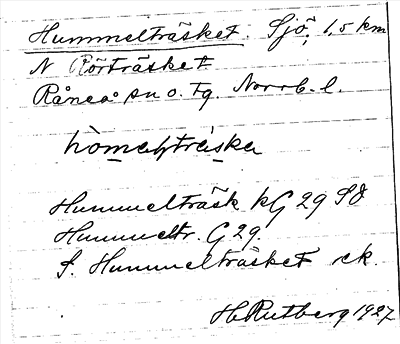 Hummelträsket. Sjö, 1,5 km
N Rörträsket
Råneå sn o. tg. Norrb. l.
Hummelträsk kG 29 Sd
Hummeltr. G 29.
f. Hummelträsket rek.
H Rutberg 1927